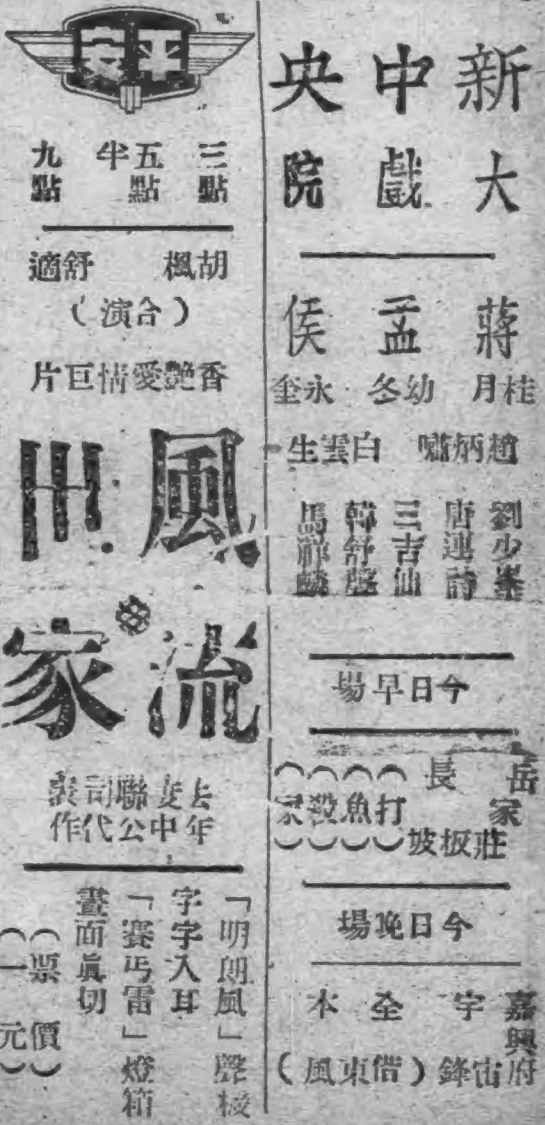 新中央
大戲院
蔣桂月
孟幼冬
侯永奎
趙炳嘯 白雲生
劉少峯
唐運詩
三吉仙
韓舒
馬祥麟
今日早場
岳家莊
長板坡
(打)(魚)(殺)(家)
今日晚場
嘉興府
宇宙鋒
全本(借東風)
平安
三點
五點半
九點
胡楓 舒適
(合演)
香艷愛情巨片
風流
世家
去年度中聯公司代表作
「明朗風」聲機
字字入耳
「賽丐雷」燈箱
畫面眞切
(票價)
(一元)